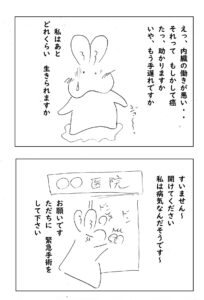 えっ、内臓の働きが悪い・・
それって もしかして癌
たっ、助かりますか
いや、もう手遅れですか
私はあと
どれくらい 生きられますか
すいません～
開けてください
私は病気なんだそうです～
〇〇医院
お願いです
ただちに 緊急手術を
して下さい